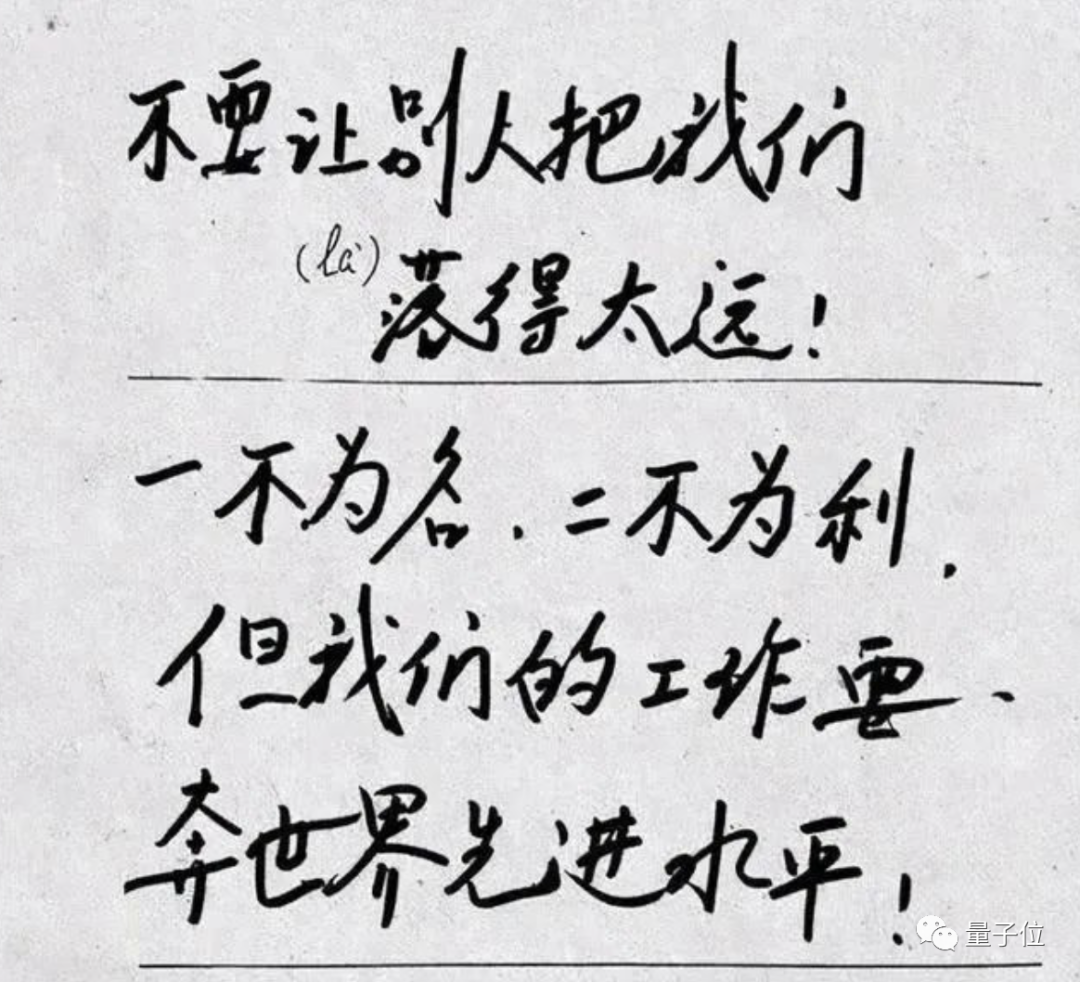 不要让别人把我们
(là)落得太远!
一不为名、二不为利,
但我们的工作要
奔世界先进水平!
量子位